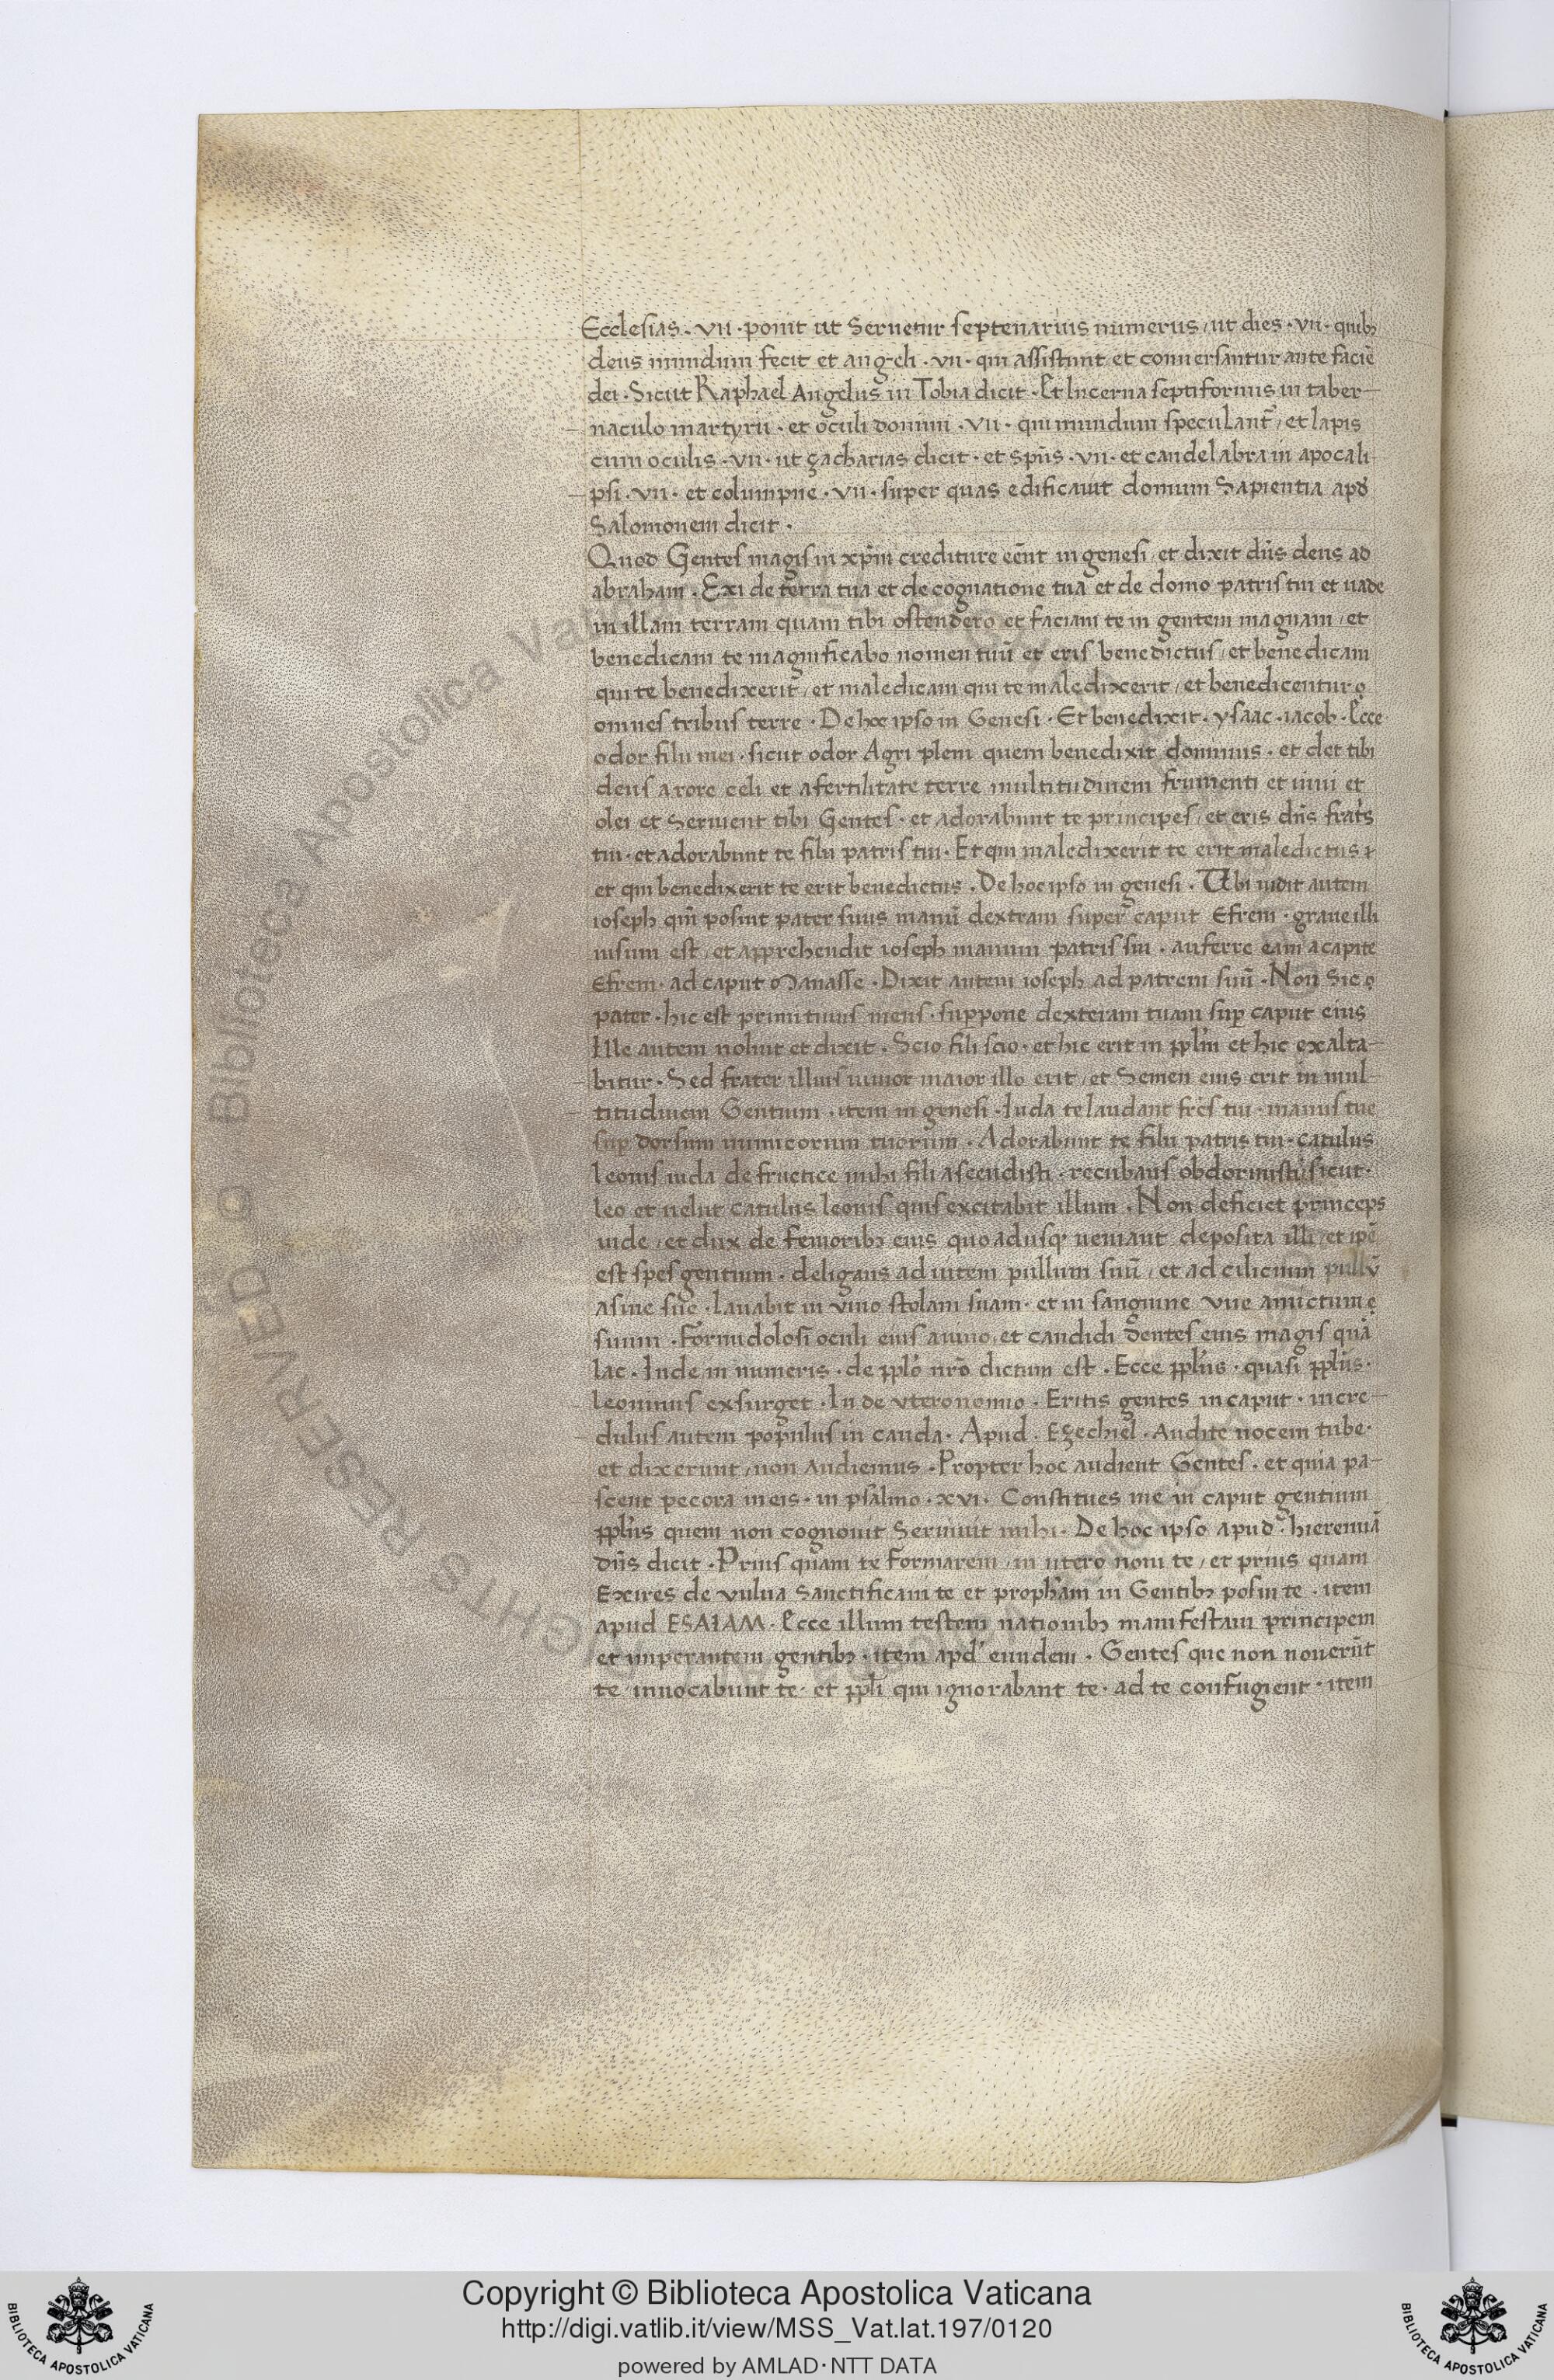 Ecclesias · vii · ponit ut Seruetur septenarius numerus / ut dies · vii · quibꝫ
deus mundum fecit et angeli · vii · qui assistunt et conuersantur ante faciē
dei · Sicut Raphael Angelus in Tobia dicit · Et lucerna septiformis in taber-
naculo martyrii · et oculi domini · vii · qui mundum speculant̃ / et lapis
cum oculis · vii · ut çacharias dicit · et sp̄us · vii · et candelabra in apocali-
psi · vii · et columpne · vii · super quas edificauit domum Sapientia apd̄
Salomonem dicit ·
Quod Gentes magis in xp̄m crediture eēnt in genesi / et dixit dn̄s deus ad
abraham · Exi de terra tua et de cognatione tua et de domo patris tui et uade
in illam terram quam tibi ostendero et faciam te in gentem magnam / et
benedicam te magnificabo nomen tuū et eris benedictus / et benedicam
qui te benedixerit / et maledicam qui te maledixerit / et benedicentur
omnes tribus terre · De hoc ipso in Genesi · Et benedixit · ysaac · iacob · Ecce
odor filii mei · sicut odor Agri pleni quem benedixit dominus · et det tibi
deus a rore celi et a fertilitate terre multitudinem frumenti et uini et
olei et Seruient tibi Gentes · et adorabunt te principes / et eris dn̄s frat̃s
tui · et adorabunt te filii patris tui · Et qui maledixerit te erit maledictus
et qui benedixerit te erit benedictus · De hoc ipso in genesi · Ubi uidit autem
ioseph qm̄ posuit pater suus manū dextram super caput Efrem · graue illi
uisum est / et apprehendit ioseph manum patris sui · auferre eam a capite
Efrem · ad caput Manasse · Dixit autem ioseph ad patrem suū · Non Sic
pater · hic est primitiuus meus · suppone dexteram tuam suꝑ caput eius
Ille autem noluit et dixit · Scio fili scio · et hic erit in ppl̄m et hic exalta-
bitur · Sed frater illius iunior maior illo erit / et Semen eius erit in mul-
titudinem Gentium · item in genesi · Iuda te laudant fr̄es tui · manus tue
suꝑ dorsum inimicorum tuorum · Adorabunt te filii patris tui · catulus
leonis iuda de fructice mihi fili ascendisti · recubans obdormisti / sicut ·
leo et uelut catulus leonis quis excitabit illum · Non deficiet princeps
iude / et dux de femoribꝫ eius quoadusqꝫ ueniant deposita illi / et ipē
est spes gentium · deligans ad uitem pullum suū / et ad cilicium pullū
asine sue · lauabit in vino stolam suam · et in sanguine vue amictum
suum · Formidolosi oculi eius a uino / et candidi dentes eius magis quā
lac · Inde in numeris · de ppl̄o nr̄o dictum est · Ecce ppl̄us · quasi ppl̄us ·
leoninus exsurget · In de vteronomio · Eritis gentes in caput · incre-
dulus autem populus in cauda · Apud · Ezechiel · Audite uocem tube ·
et dixerunt / non Audiemus · Propter hoc audient Gentes · et quia pa-
scent pecora in eis · in psalmo · xvi · Constitues me in caput gentium
ppl̄us quem non cognouit Seruiuit mihi · De hoc ipso apud · hieremiā
dn̄s dicit · Prius quam te Formarem / in utero noui te / et prius quam
Exires de vulua Sanctificaui te et propham in Gentibꝫ posui te · item
apud ESAIAM · Ecce illum testem nationibꝫ manifestaui principem
et imperantem gentibꝫ · item apd' eundem · Gentes que non nouerūt
te inuocabunt te · et ppl̄i qui ignorabant te · ad te confugient · item
Copyright © Biblioteca Apostolica Vaticana
http://digi.vatlib.it/view/MSS_Vat.lat.197/0120
powered by AMLAD·NTT DATA
BIBLIOTECA APOSTOLICA VATICANA
BIBLIOTECA APOSTOLICA VATICANA